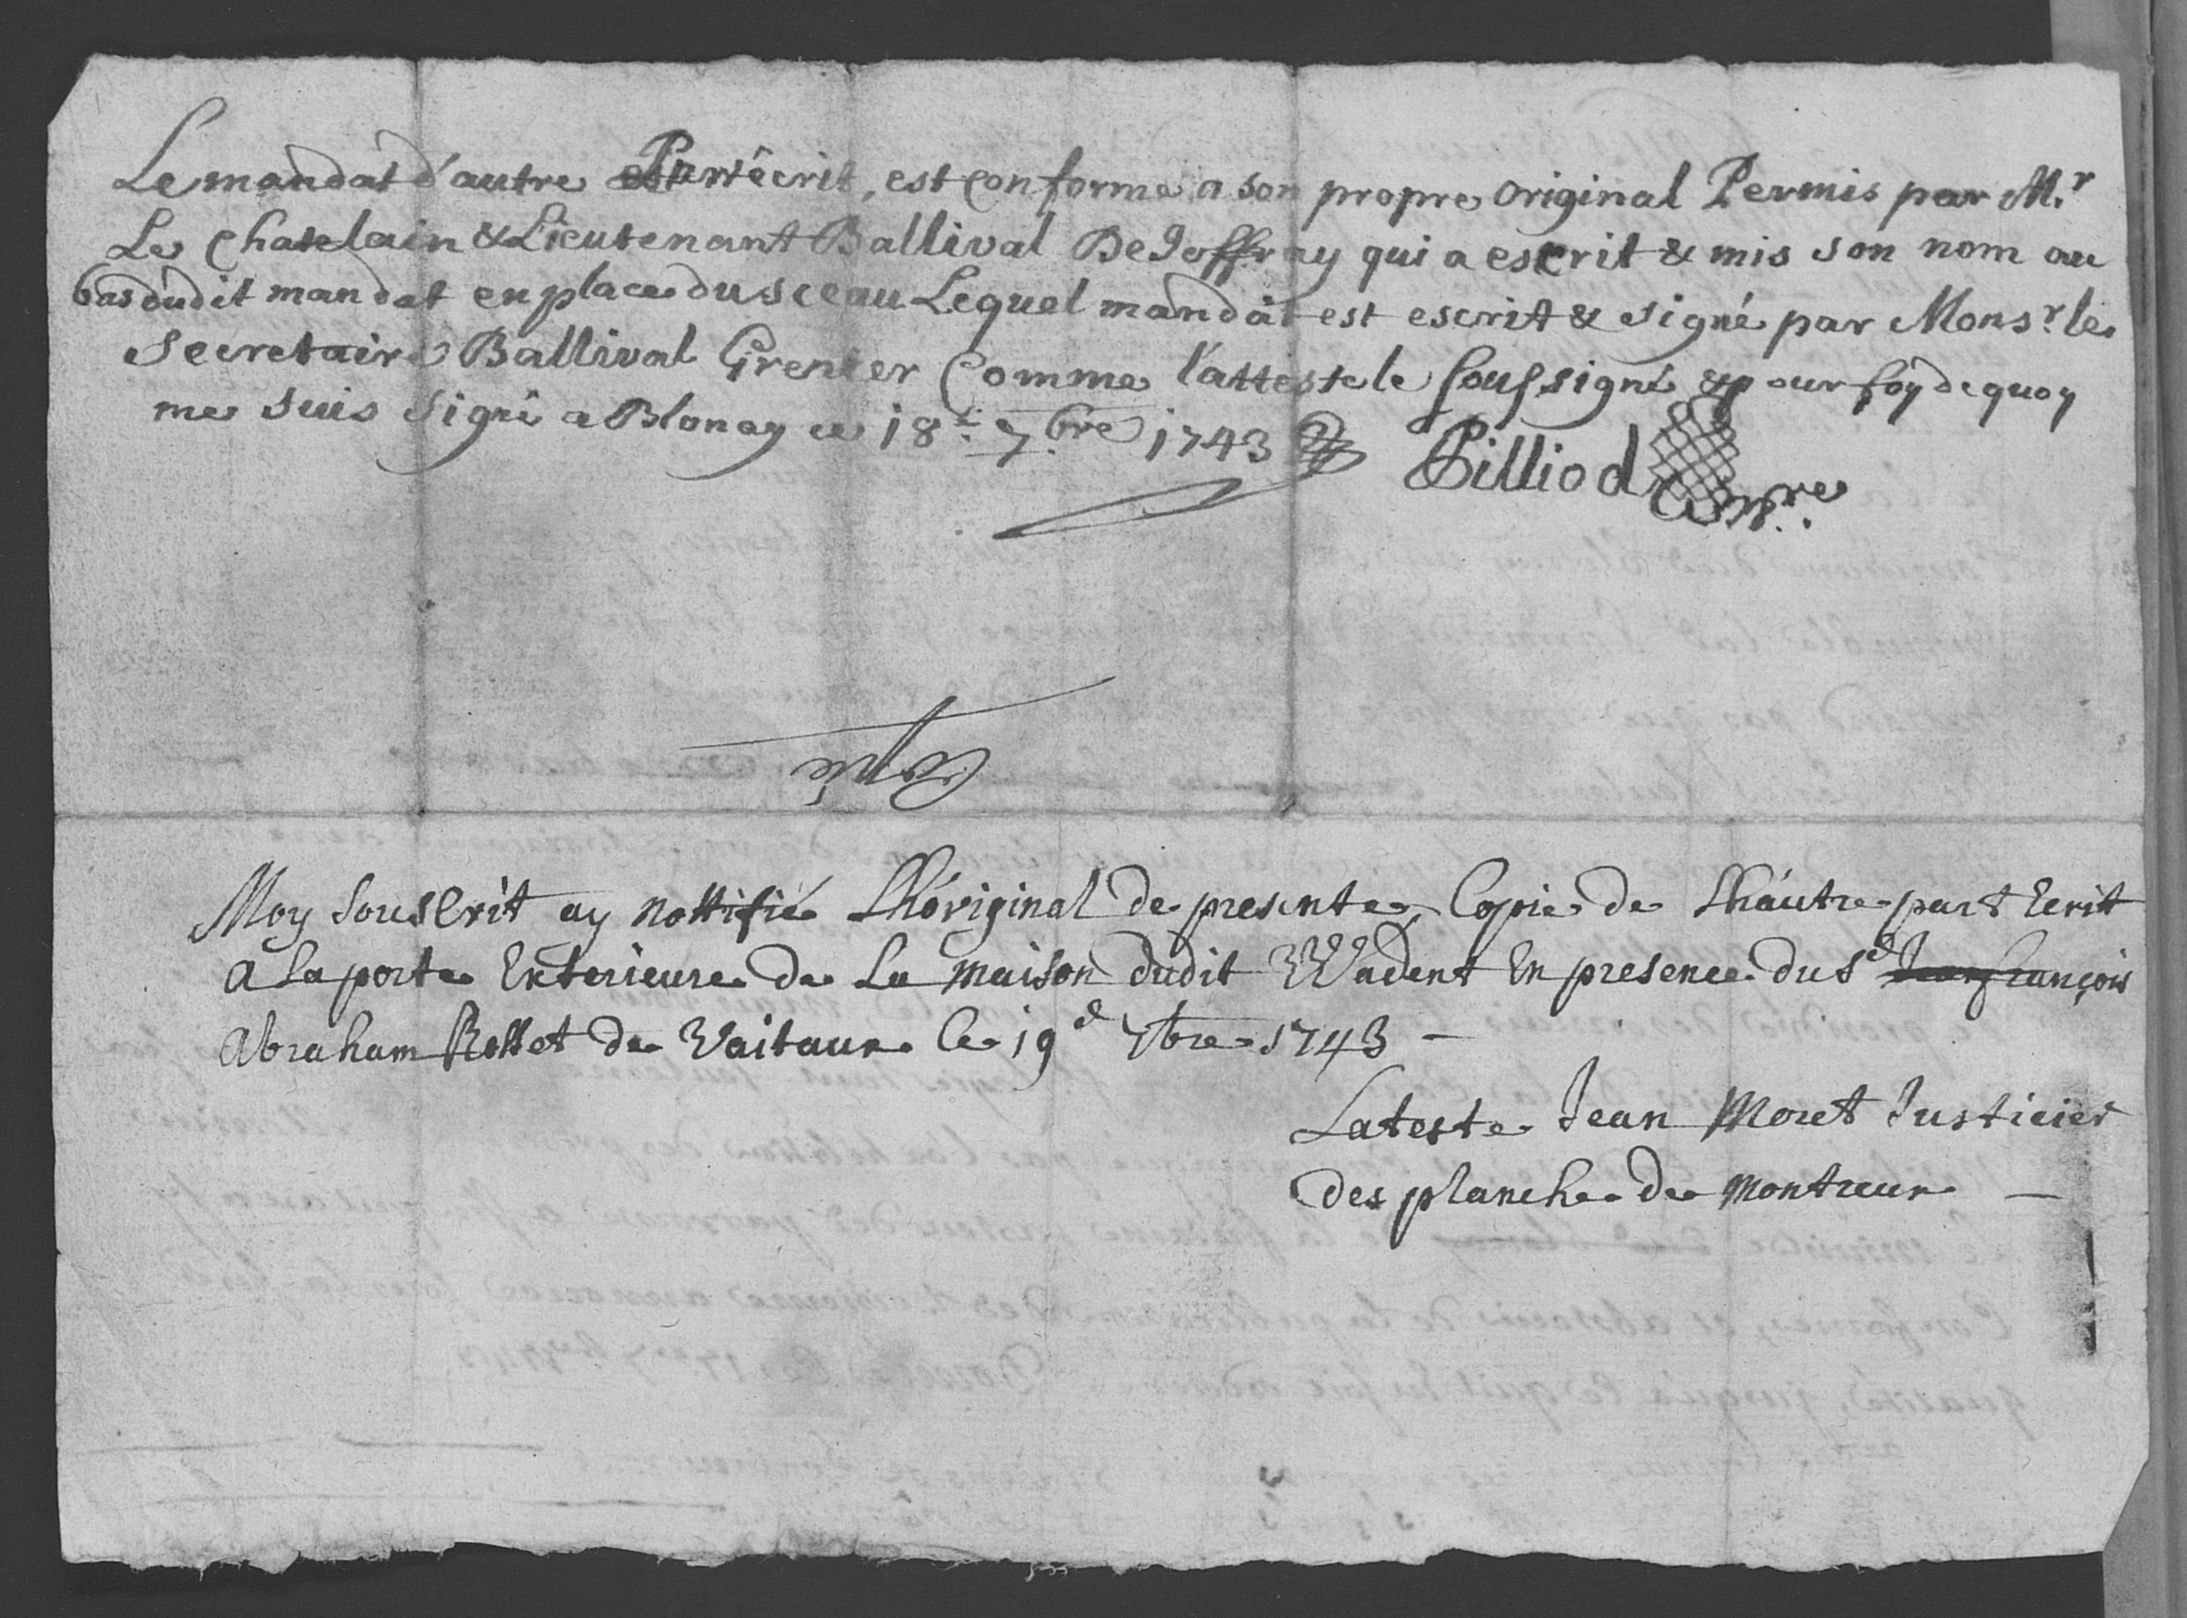 Le mandat d'autre Part écrit, est conforme a son propre original Permis par Mr.
Le Chatelain & Lieutenant Ballival De Joffray qui a escrit & mis son nom au
bas dudit mandat en place du sceau Lequel mandat est escrit & signé par Monsr. le
Secretaire Ballival Grenier Comme l'atteste le soussigné & pour foy de quoy
me suis signé a Blonay ce 18e 7bre 1743
Pilliod
Copie
Moy Souscrit ay nottifié Lhóriginal de presente Copie de Lháutre part Ecrit
a La porte Exterieure de La maison dudit Wadent En presence du sd Jean françois
Abraham Rollet de Vaitaux le 19e 7bre 1743 –
Lateste Jean Moret Justicier
des planche de montreux —